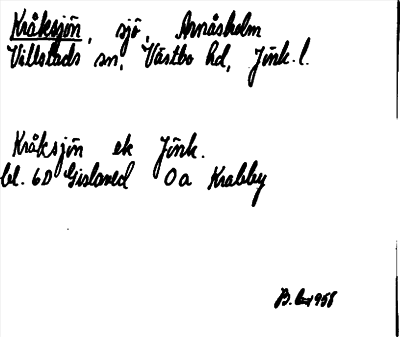 Kråksjön, sjö, Arnåsholm
Villstads sn, Västbo hd, Jönk. l.
Kråksjön ek Jönk.
bl. 6D Gislaved 0a Krabby
B. 1958